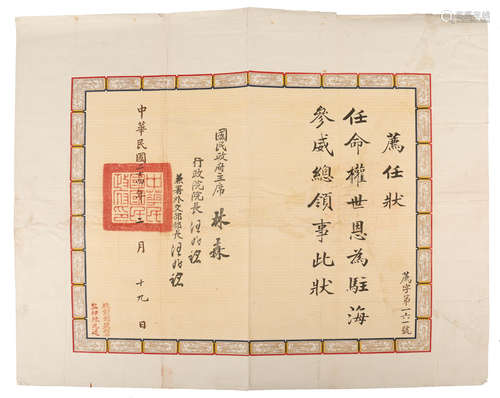 薦任狀
任命權世恩為駐海
參威總領事此狀
薦字第一六一號
國民政府主席 林森
行政院院長 汪兆銘
兼署外交部部長 汪兆銘
中華民國二十四年三月十九日